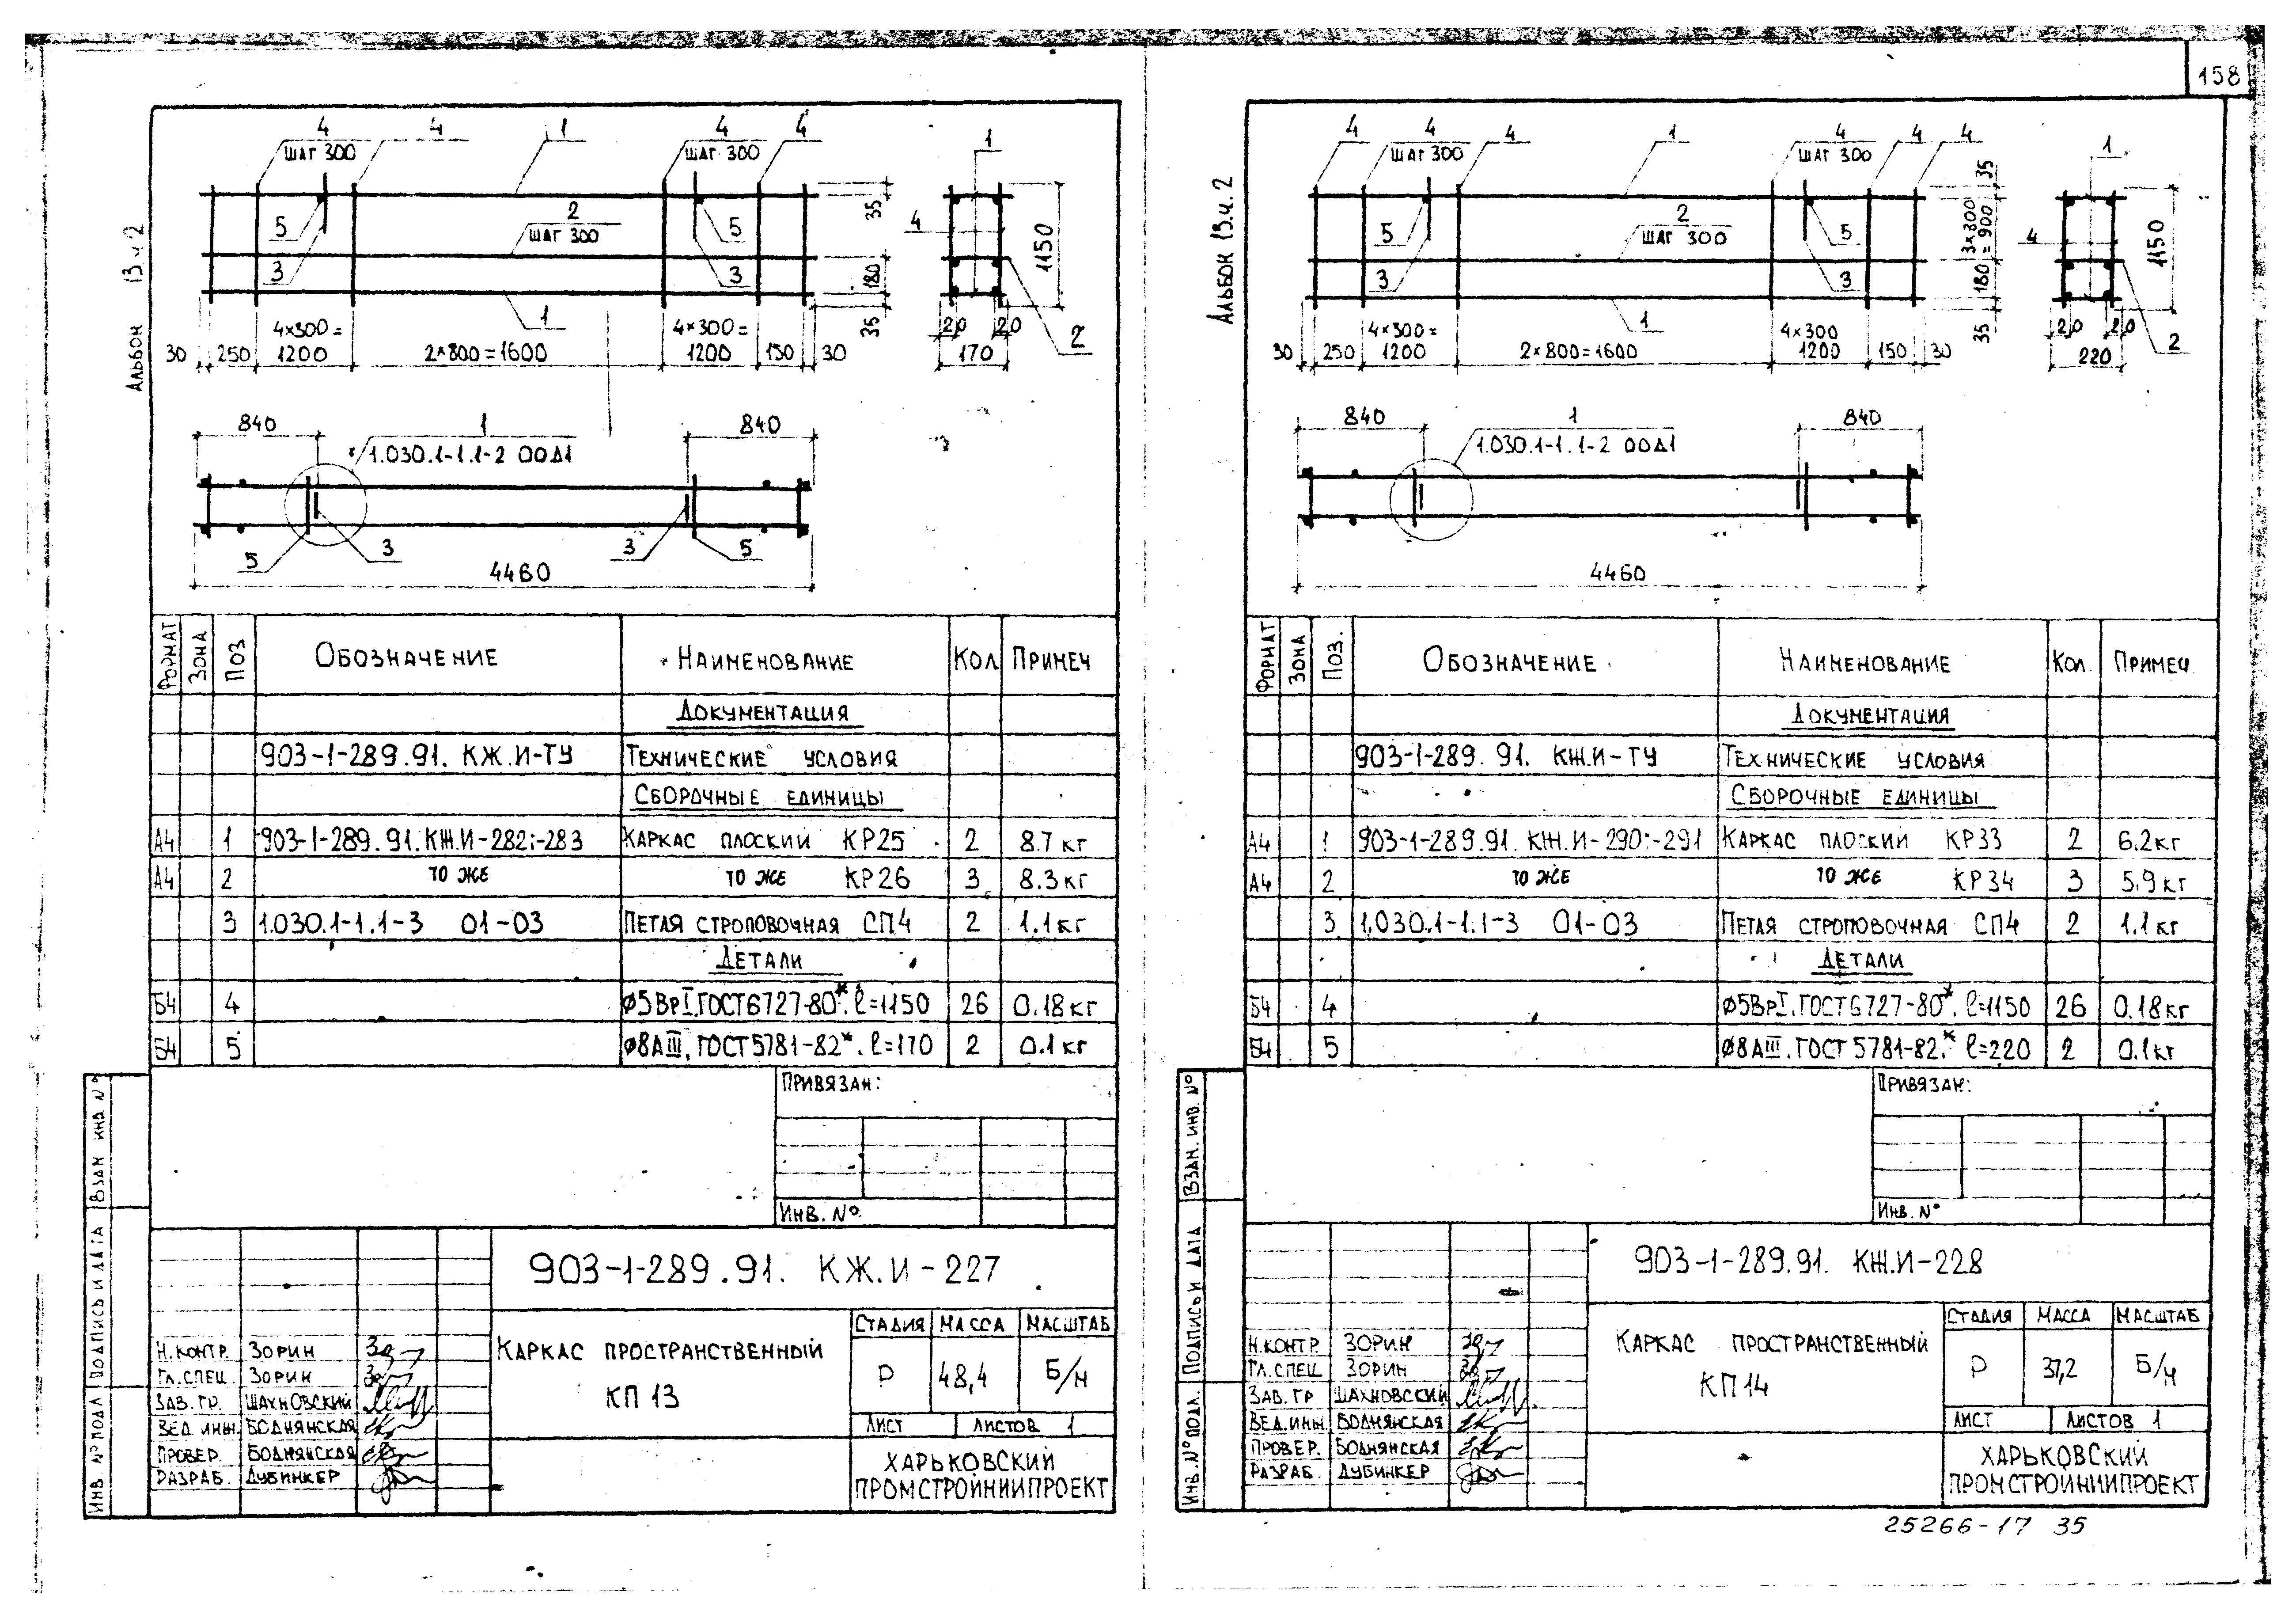 158
Альбом 13 ч 2
4
ШАГ 300
4
1
4
ШАГ 300
4
1
5
3
2
ШАГ 300
5
3
35
4
1150
180
35
1
2
30
250
4×300=
1200
2×800=1600
4×300=
1200
150
30
20
20
170
840
1
1.030.1-1.1-2 00Д1
840
5
3
3
5
4460
ФОРМАТ ЗОНА ПОЗ ОБОЗНАЧЕНИЕ НАИМЕНОВАНИЕ КОЛ ПРИМЕЧ
ДОКУМЕНТАЦИЯ
903-1-289.91. КЖ.И-ТУ ТЕХНИЧЕСКИЕ УСЛОВИЯ
СБОРОЧНЫЕ ЕДИНИЦЫ
А4 1 903-1-289.91.КЖ.И-282;-283 КАРКАС ПЛОСКИЙ КР25 2 8.7 кг
А4 2 ТО ЖЕ ТО ЖЕ КР26 3 8.3 кг
3 1.030.1-1.1-3 01-03 ПЕТЛЯ СТРОПОВОЧНАЯ СП4 2 1.1 кг
ДЕТАЛИ
Б4 4 ⌀5ВрI.ГОСТ6727-80*. ℓ=1150 26 0.18 кг
Б4 5 ⌀8АIII. ГОСТ5781-82*. ℓ=170 2 0.1 кг
ПРИВЯЗАН:
ИНВ. №
ИНВ №ПОДЛ ПОДПИСЬ И ДАТА ВЗАМ ИНВ №
903-1-289.91. КЖ.И-227
КАРКАС ПРОСТРАНСТВЕННЫЙ
КП 13
СТАДИЯ МАССА МАСШТАБ
Р 48,4 Б/М
ЛИСТ ЛИСТОВ 1
ХАРЬКОВСКИЙ
ПРОМСТРОЙНИИПРОЕКТ
Н.КОНТР. ЗОРИН
ГЛ.СПЕЦ. ЗОРИН
ЗАВ. ГР. ШАХНОВСКИЙ
ВЕД ИНЖ. БОДНЯНСКАЯ
ПРОВЕР. БОДНЯНСКАЯ
РАЗРАБ. ДУБИНКЕР
Альбом 13.ч. 2
4
4
ШАГ 300
4
1
4
ШАГ 300
4
4
1
5
3
2
ШАГ 300
5
3
35
3×300
=900
180
35
4
1150
1
2
30
250
4×300=
1200
2×800=1600
4×300
1200
150
30
20
20
220
840
1
1.030.1-1.1-2 00Д1
840
4460
ФОРМАТ ЗОНА ПОЗ. ОБОЗНАЧЕНИЕ НАИМЕНОВАНИЕ КОЛ. ПРИМЕЧ
ДОКУМЕНТАЦИЯ
903-1-289.91. КЖ.И-ТУ ТЕХНИЧЕСКИЕ УСЛОВИЯ
СБОРОЧНЫЕ ЕДИНИЦЫ
А4 1 903-1-289.91. КЖ.И-290;-291 КАРКАС ПЛОСКИЙ КР33 2 6.2 кг
А4 2 ТО ЖЕ ТО ЖЕ КР34 3 5.9 кг
3 1.030.1-1.1-3 01-03 ПЕТЛЯ СТРОПОВОЧНАЯ СП4 2 1.1 кг
ДЕТАЛИ
Б4 4 ⌀5ВрI.ГОСТ6727-80*. ℓ=1150 26 0.18 кг
Б4 5 ⌀8АIII.ГОСТ 5781-82.* ℓ=220 2 0.1 кг
ПРИВЯЗАН:
ИНВ. №
ИНВ.№ПОДЛ. ПОДПИСЬ И ДАТА ВЗАМ. ИНВ. №
903-1-289.91. КЖ.И-228
КАРКАС ПРОСТРАНСТВЕННЫЙ
КП14
СТАДИЯ МАССА МАСШТАБ
Р 37,2 Б/М
ЛИСТ ЛИСТОВ 1
ХАРЬКОВСКИЙ
ПРОМСТРОЙНИИПРОЕКТ
Н.КОНТР. ЗОРИН
ГЛ.СПЕЦ ЗОРИН
ЗАВ. ГР ШАХНОВСКИЙ
ВЕД.ИНЖ. БОДНЯНСКАЯ
ПРОВЕР. БОДНЯНСКАЯ
РАЗРАБ. ДУБИНКЕР
25266-17 35